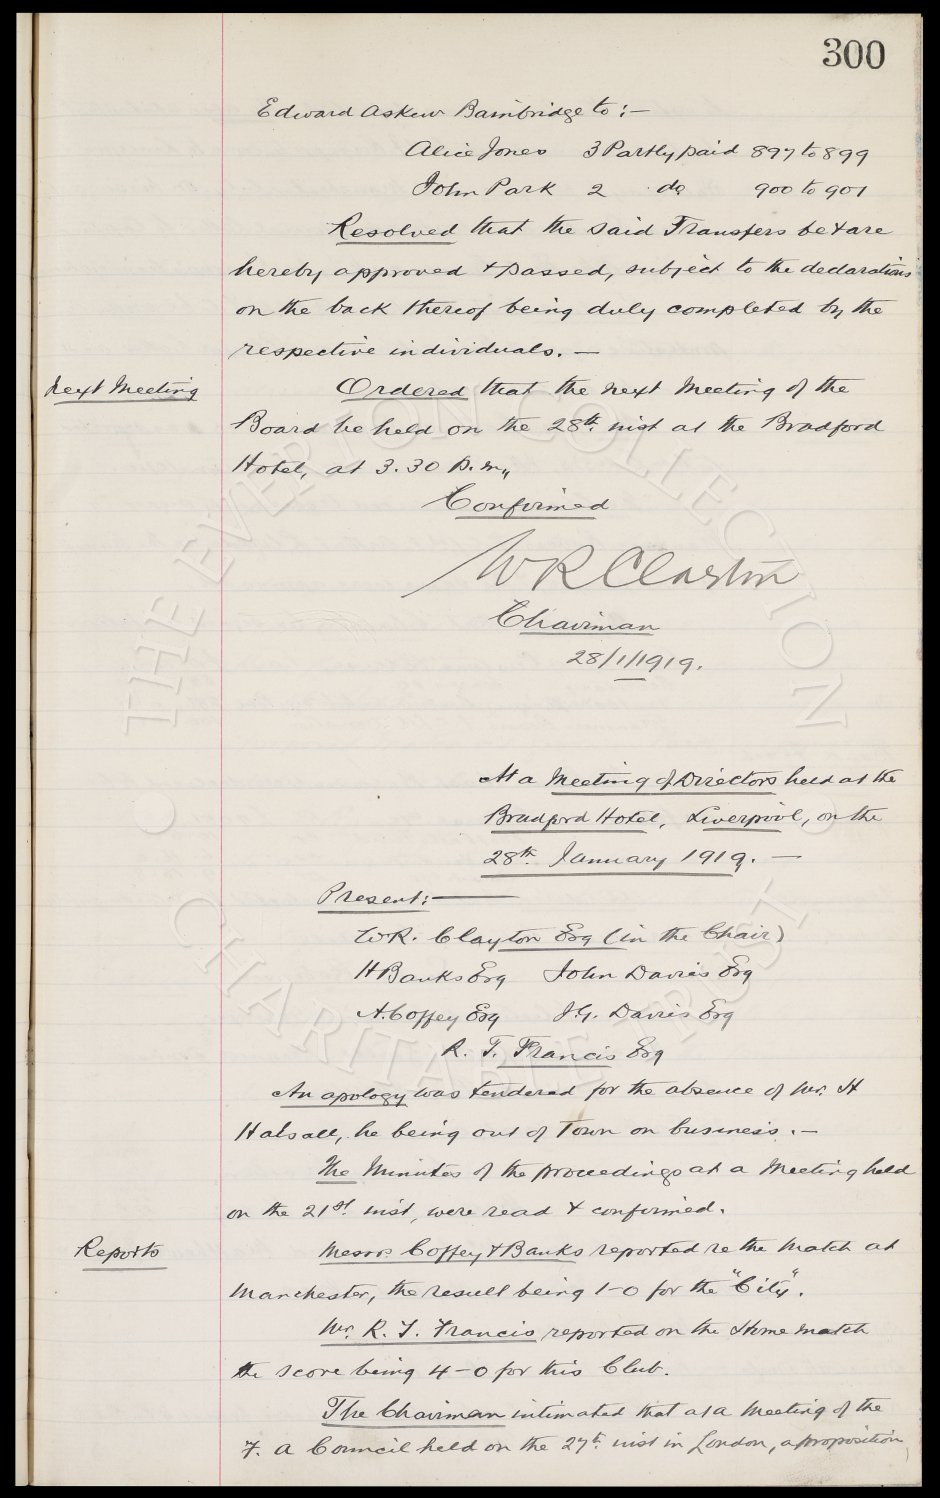 300
Edward Askew Bainbridge to :—
Alice Jones 3 Partly paid 897 to 899
John Park 2 do 900 to 901
Resolved that the said Transfers be & are
hereby approved & passed, subject to the declarations
on the back thereof being duly completed by the
respective individuals. —
Next Meeting
Ordered that the next Meeting of the
Board be held on the 28th. inst at the Bradford
Hotel, at 3.30 p.m,,
Confirmed
W R Clayton
Chairman
28/1/1919.
At a Meeting of Directors held at the
Bradford Hotel, Liverpool, on the
28th. January 1919. —
Present:—
W.R. Clayton Esq (in the Chair)
H Banks Esq John Davies Esq
A. Coffey Esq J.G. Davies Esq
R. T. Francis Esq
An apology was tendered for the absence of Mr. H
Halsall, he being out of Town on business. —
The Minutes of the proceedings at a Meeting held
on the 21st. inst, were read & confirmed.
Reports
Messrs. Coffey & Banks reported re the Match at
Manchester, the result being 1-0 for the "City".
Mr. R. T. Francis reported on the Home match
the score being 4-0 for this Club.
The Chairman intimated that at a Meeting of the
F. A Council held on the 27th. inst in London, a proposition
THE EVERTON COLLECTION
CHARITABLE TRUST